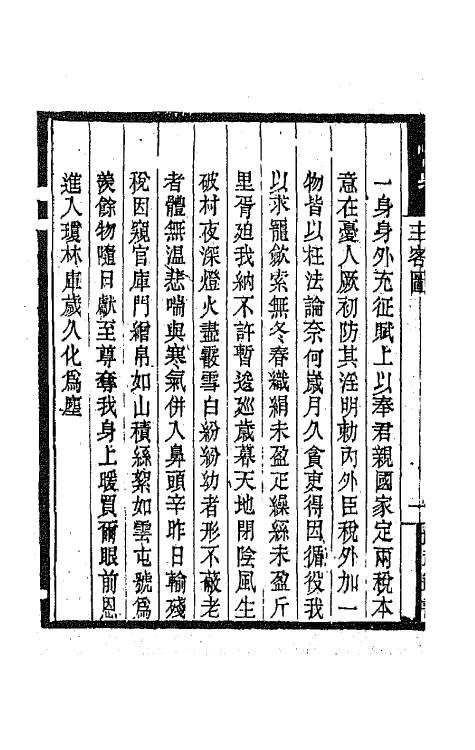 主客圖
一身身外充征賦上以奉君親國家定兩稅本
意在憂人厥初防其淫明勅內外臣稅外加一
物皆以枉法論奈何歲月久貪吏得因循役我
以求寵歛索無冬春織絹未盈疋繰絲未盈斤
里胥廹我納不許暫逡廵歲暮天地閉陰風生
破村夜深燈火盡霰雪白紛紛幼者形不蔽老
者體無温悲喘與寒氣併入鼻頭辛昨日輸殘
稅因窺官庫門繒帛如山積絲絮如雲屯號為
羨餘物隨日獻至尊奪我身上暖買爾眼前恩
進入瓊林庫歲久化為塵